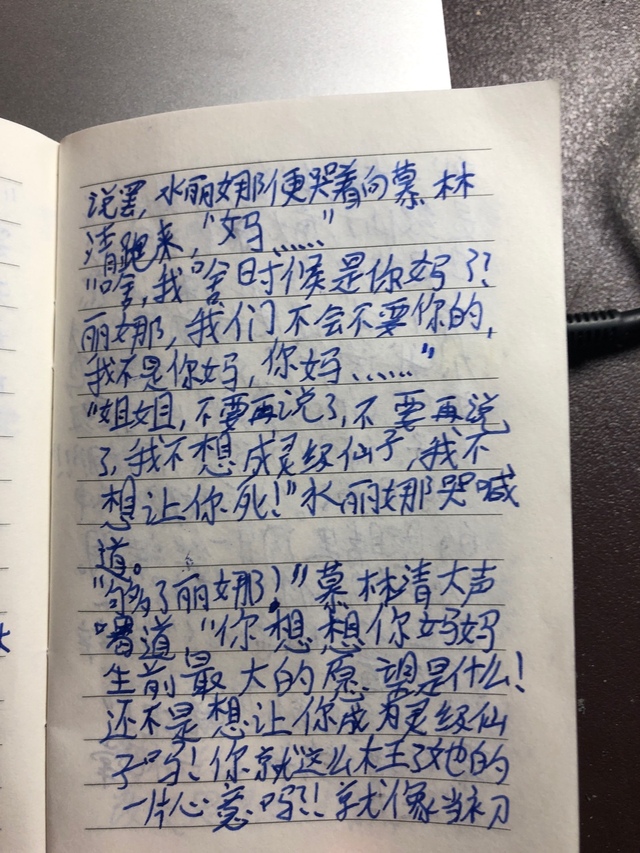 说罢，水丽娜那便哭着向慕林
清跑来，"妈……"
"啥，我啥时候是你妈了？
丽娜，我们不会不要你的，
我不是你妈，你妈……"
"姐姐，不要再说了，不要再说
了，我不想成灵级仙子，我不
想让你死！"水丽娜哭喊
道。
"够了丽娜！"慕林清大声
道，"你想想你妈妈
生前最大的愿望是什么！
还不是想让你成为灵级仙
子吗！你就这么枉了她的
一片心意吗！！就像当初